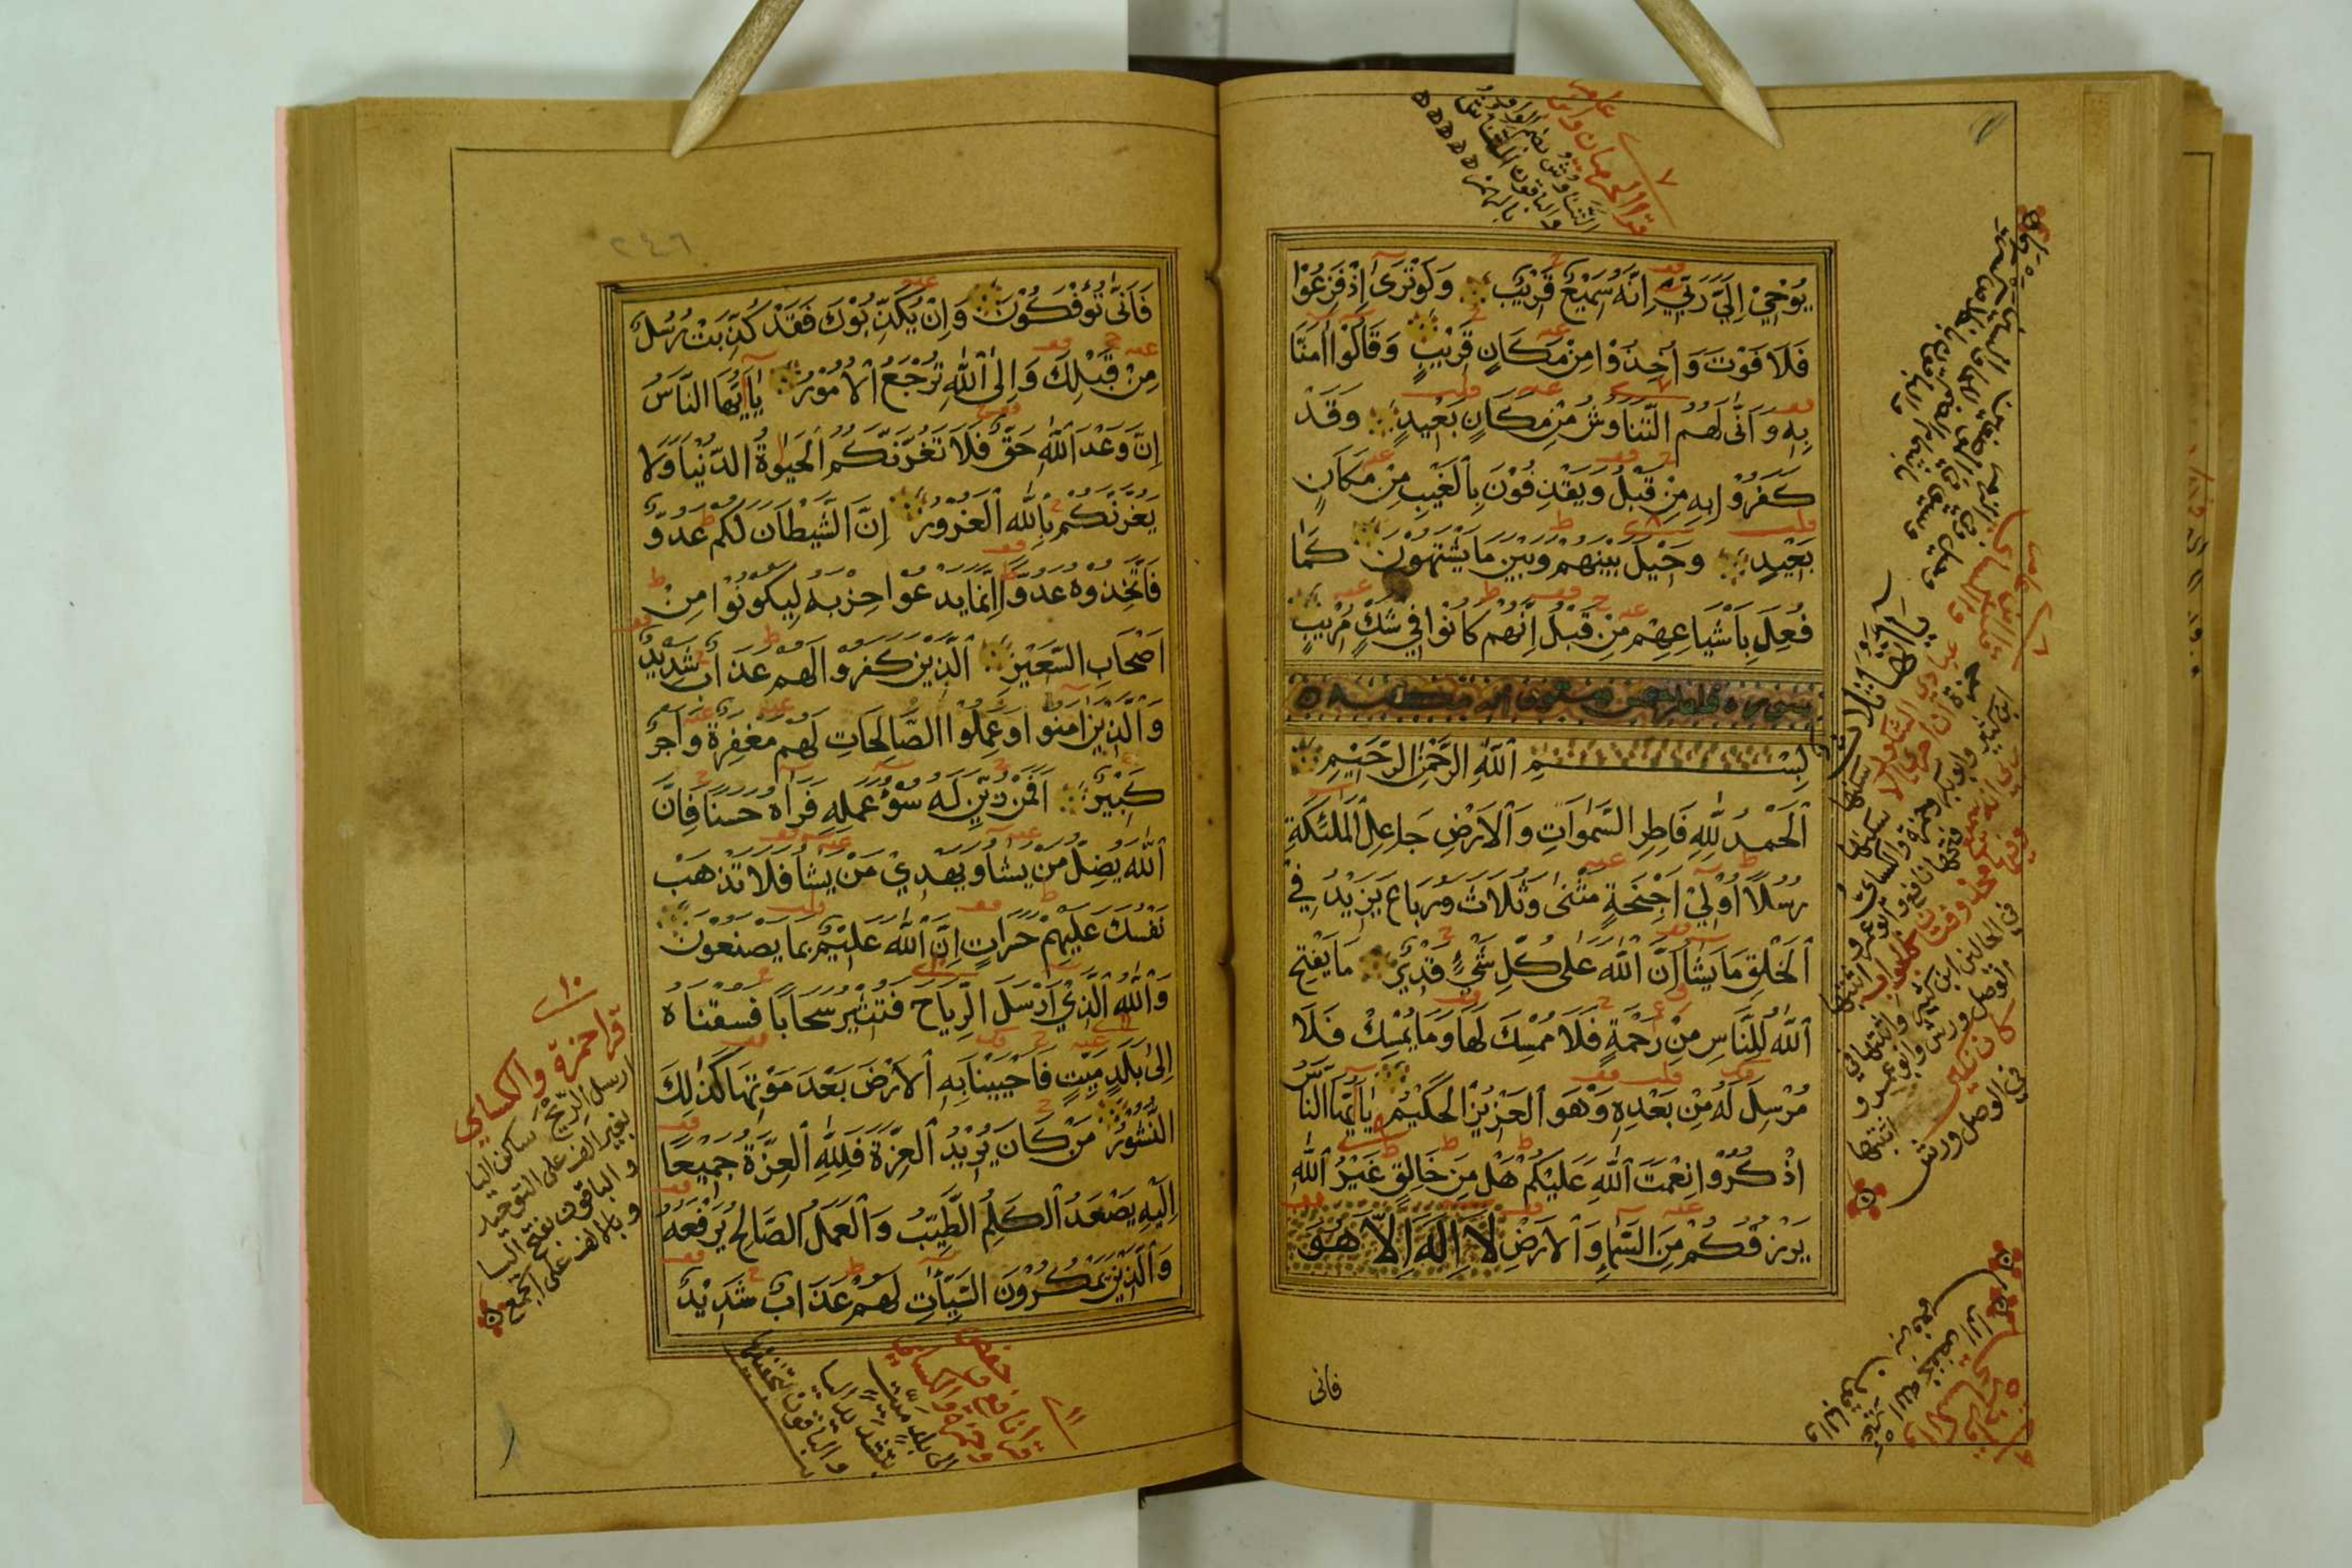 يُوْحِيْ اِلَيَّ رَبِّيْ اِنَّهُ سَمِيْعٌ قَرِيْبٌ وَلَوْتَرٰى اِذْفَزِعُوْا
فَلَا فَوْتَ وَاُخِذُوْا مِنْ مَكَانٍ قَرِيْبٍ وَقَالُوْا اٰمَنَّا
بِهِ وَاَنّٰى لَهُمُ التَّنَاوُشُ مِنْ مَكَانٍ بَعِيْدٍ وَقَدْ
كَفَرُوْا بِهِ مِنْ قَبْلُ وَيَقْذِفُوْنَ بِالْغَيْبِ مِنْ مَكَانٍ
بَعِيْدٍ وَحِيْلَ بَيْنَهُمْ وَبَيْنَ مَا يَشْتَهُوْنَ كَمَا
فُعِلَ بِاَشْيَاعِهِمْ مِنْ قَبْلُ اِنَّهُمْ كَانُوْا فِيْ شَكٍّ مُرِيْبٍ
بِسْمِ اللّٰهِ الرَّحْمٰنِ الرَّحِيْمِ
اَلْحَمْدُ لِلّٰهِ فَاطِرِ السَّمٰوَاتِ وَالْاَرْضِ جَاعِلِ الْمَلٰئِكَةِ
رُسُلًا اُوْلِيْ اَجْنِحَةٍ مَثْنٰى وَثُلَاثَ وَرُبَاعَ يَزِيْدُ فِيْ
الْخَلْقِ مَا يَشَاءُ اِنَّ اللّٰهَ عَلٰى كُلِّ شَيْءٍ قَدِيْرٌ مَا يَفْتَحِ
اللّٰهُ لِلنَّاسِ مِنْ رَحْمَةٍ فَلَا مُمْسِكَ لَهَا وَمَا يُمْسِكْ فَلَا
مُرْسِلَ لَهُ مِنْ بَعْدِهِ وَهُوَ الْعَزِيْزُ الْحَكِيْمُ يَا اَيُّهَا النَّاسُ
اذْكُرُوْا نِعْمَتَ اللّٰهِ عَلَيْكُمْ هَلْ مِنْ خَالِقٍ غَيْرُ اللّٰهِ
يَرْزُقُكُمْ مِنَ السَّمَاءِ وَالْاَرْضِ لَا اِلٰهَ اِلَّا هُوَ
فانى
٧
قرا الحرميان وابن عامر
التناوش بضم الواو
والباقون
بالهمز
٢٤٦
فَاَنّٰى تُؤْفَكُوْنَ وَاِنْ يُكَذِّبُوْكَ فَقَدْ كُذِّبَتْ رُسُلٌ
مِنْ قَبْلِكَ وَاِلَى اللّٰهِ تُرْجَعُ الْاُمُوْرُ يَا اَيُّهَا النَّاسُ
اِنَّ وَعْدَ اللّٰهِ حَقٌّ فَلَا تَغُرَّنَّكُمُ الْحَيٰوةُ الدُّنْيَا وَلَا
يَغُرَّنَّكُمْ بِاللّٰهِ الْغَرُوْرُ اِنَّ الشَّيْطَانَ لَكُمْ عَدُوٌّ
فَاتَّخِذُوْهُ عَدُوًّا اِنَّمَا يَدْعُوْا حِزْبَهُ لِيَكُوْنُوْا مِنْ
اَصْحَابِ السَّعِيْرِ اَلَّذِيْنَ كَفَرُوْا لَهُمْ عَذَابٌ شَدِيْدٌ
وَالَّذِيْنَ اٰمَنُوْا وَعَمِلُوا الصَّالِحَاتِ لَهُمْ مَغْفِرَةٌ وَاَجْرٌ
كَبِيْرٌ اَفَمَنْ زُيِّنَ لَهُ سُوْءُ عَمَلِهِ فَرَاٰهُ حَسَنًا فَاِنَّ
اللّٰهَ يُضِلُّ مَنْ يَشَاءُ وَيَهْدِيْ مَنْ يَشَاءُ فَلَا تَذْهَبْ
نَفْسُكَ عَلَيْهِمْ حَسَرَاتٍ اِنَّ اللّٰهَ عَلِيْمٌ بِمَا يَصْنَعُوْنَ
وَاللّٰهُ الَّذِيْ اَرْسَلَ الرِّيَاحَ فَتُثِيْرُ سَحَابًا فَسُقْنَاهُ
اِلٰى بَلَدٍ مَيِّتٍ فَاَحْيَيْنَا بِهِ الْاَرْضَ بَعْدَ مَوْتِهَا كَذٰلِكَ
النُّشُوْرُ مَنْ كَانَ يُرِيْدُ الْعِزَّةَ فَلِلّٰهِ الْعِزَّةُ جَمِيْعًا
اِلَيْهِ يَصْعَدُ الْكَلِمُ الطَّيِّبُ وَالْعَمَلُ الصَّالِحُ يَرْفَعُهُ
وَالَّذِيْنَ يَمْكُرُوْنَ السَّيِّاٰتِ لَهُمْ عَذَابٌ شَدِيْدٌ
١٠
قرا حمزة والكسائي
ارسل الريح ساكن اليا
بغير الف على التوحيد
والباقون بفتح اليا
وبالالف على الجمع
١١
قرا نافع وحفص
وحمزة والكسائي
الى بلد ميت
بتشديد اليا
والباقون بتخفيفها